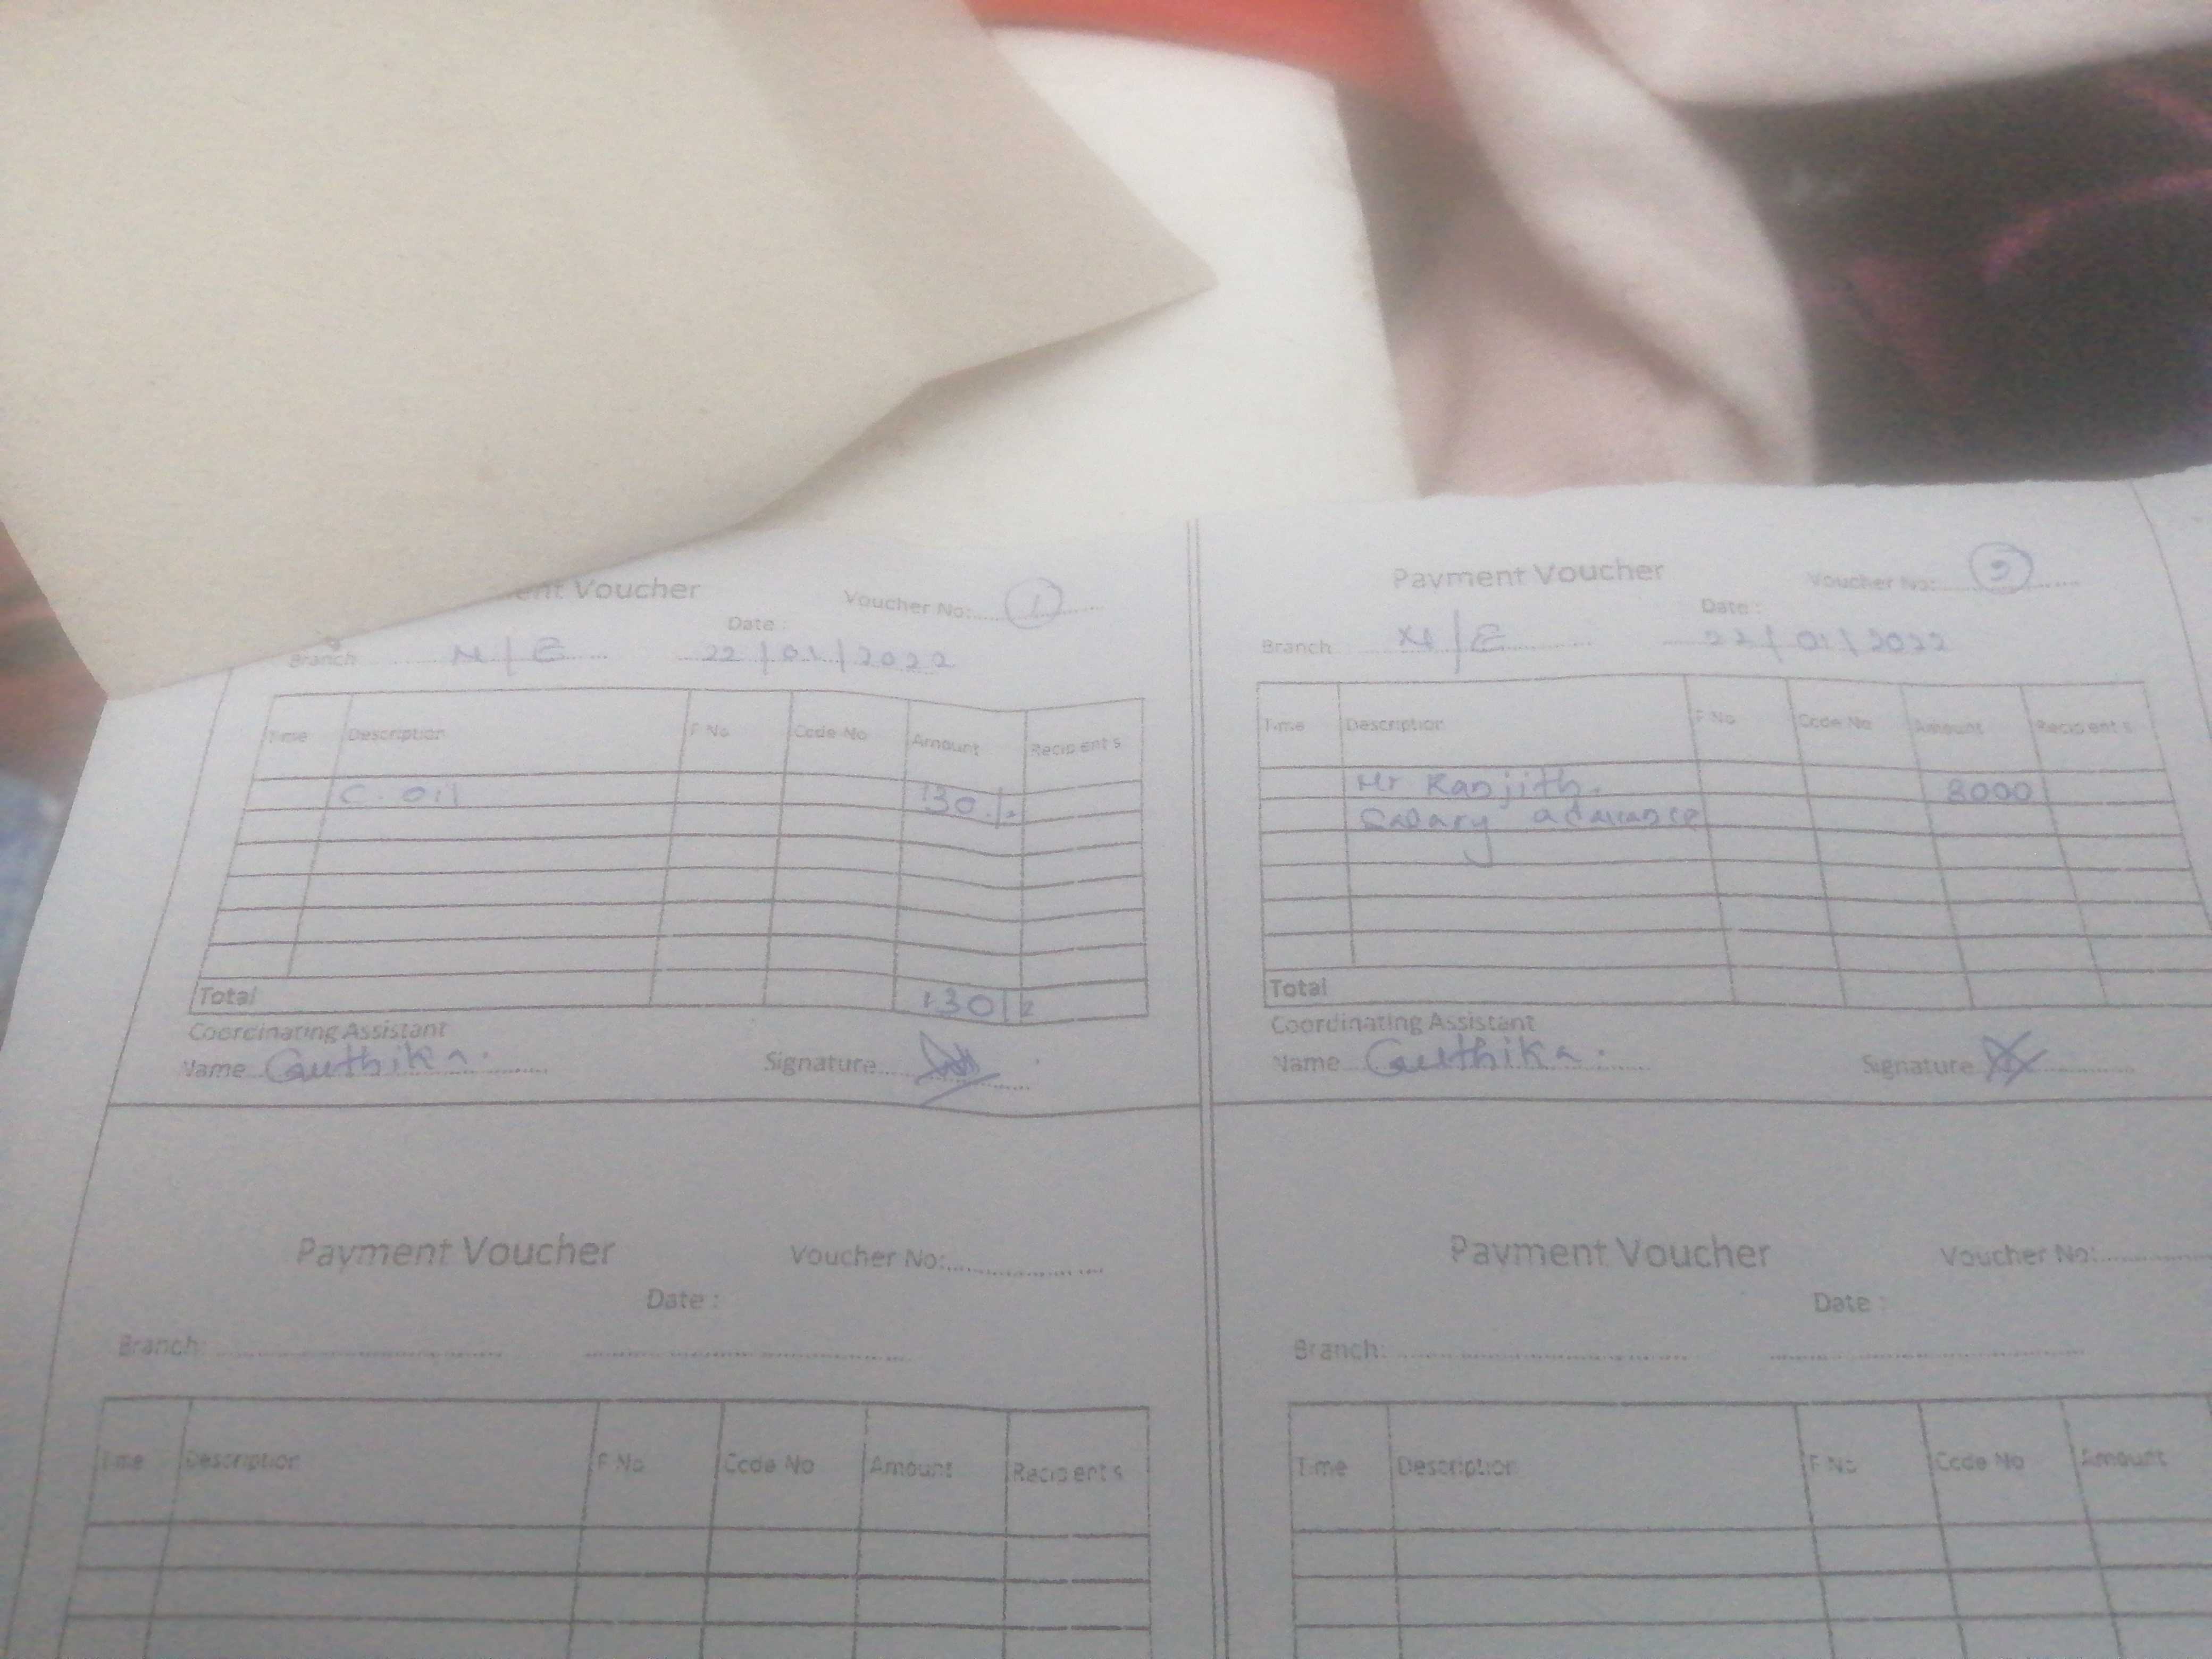 ent Voucher
Voucher No:
1
Date :
Branch
22/01/2022
Time Description F No Code No Amount Recipent s
C. Oil 130/-
Total 130/-
Coordinating Assistant
Name Guthika. Signature
Payment Voucher
Voucher No:
Date :
Branch
22/01/2022
Time Description F No Code No Amount Recipent s
Mr Ranjith. 8000
Salary advance
Total
Coordinating Assistant
Name Guthika. Signature
Payment Voucher
Voucher No:
Date :
Branch:
Time Description F No Code No Amount Recipent s
Payment Voucher
Voucher No:
Date :
Branch:
Time Description F No Code No Amount